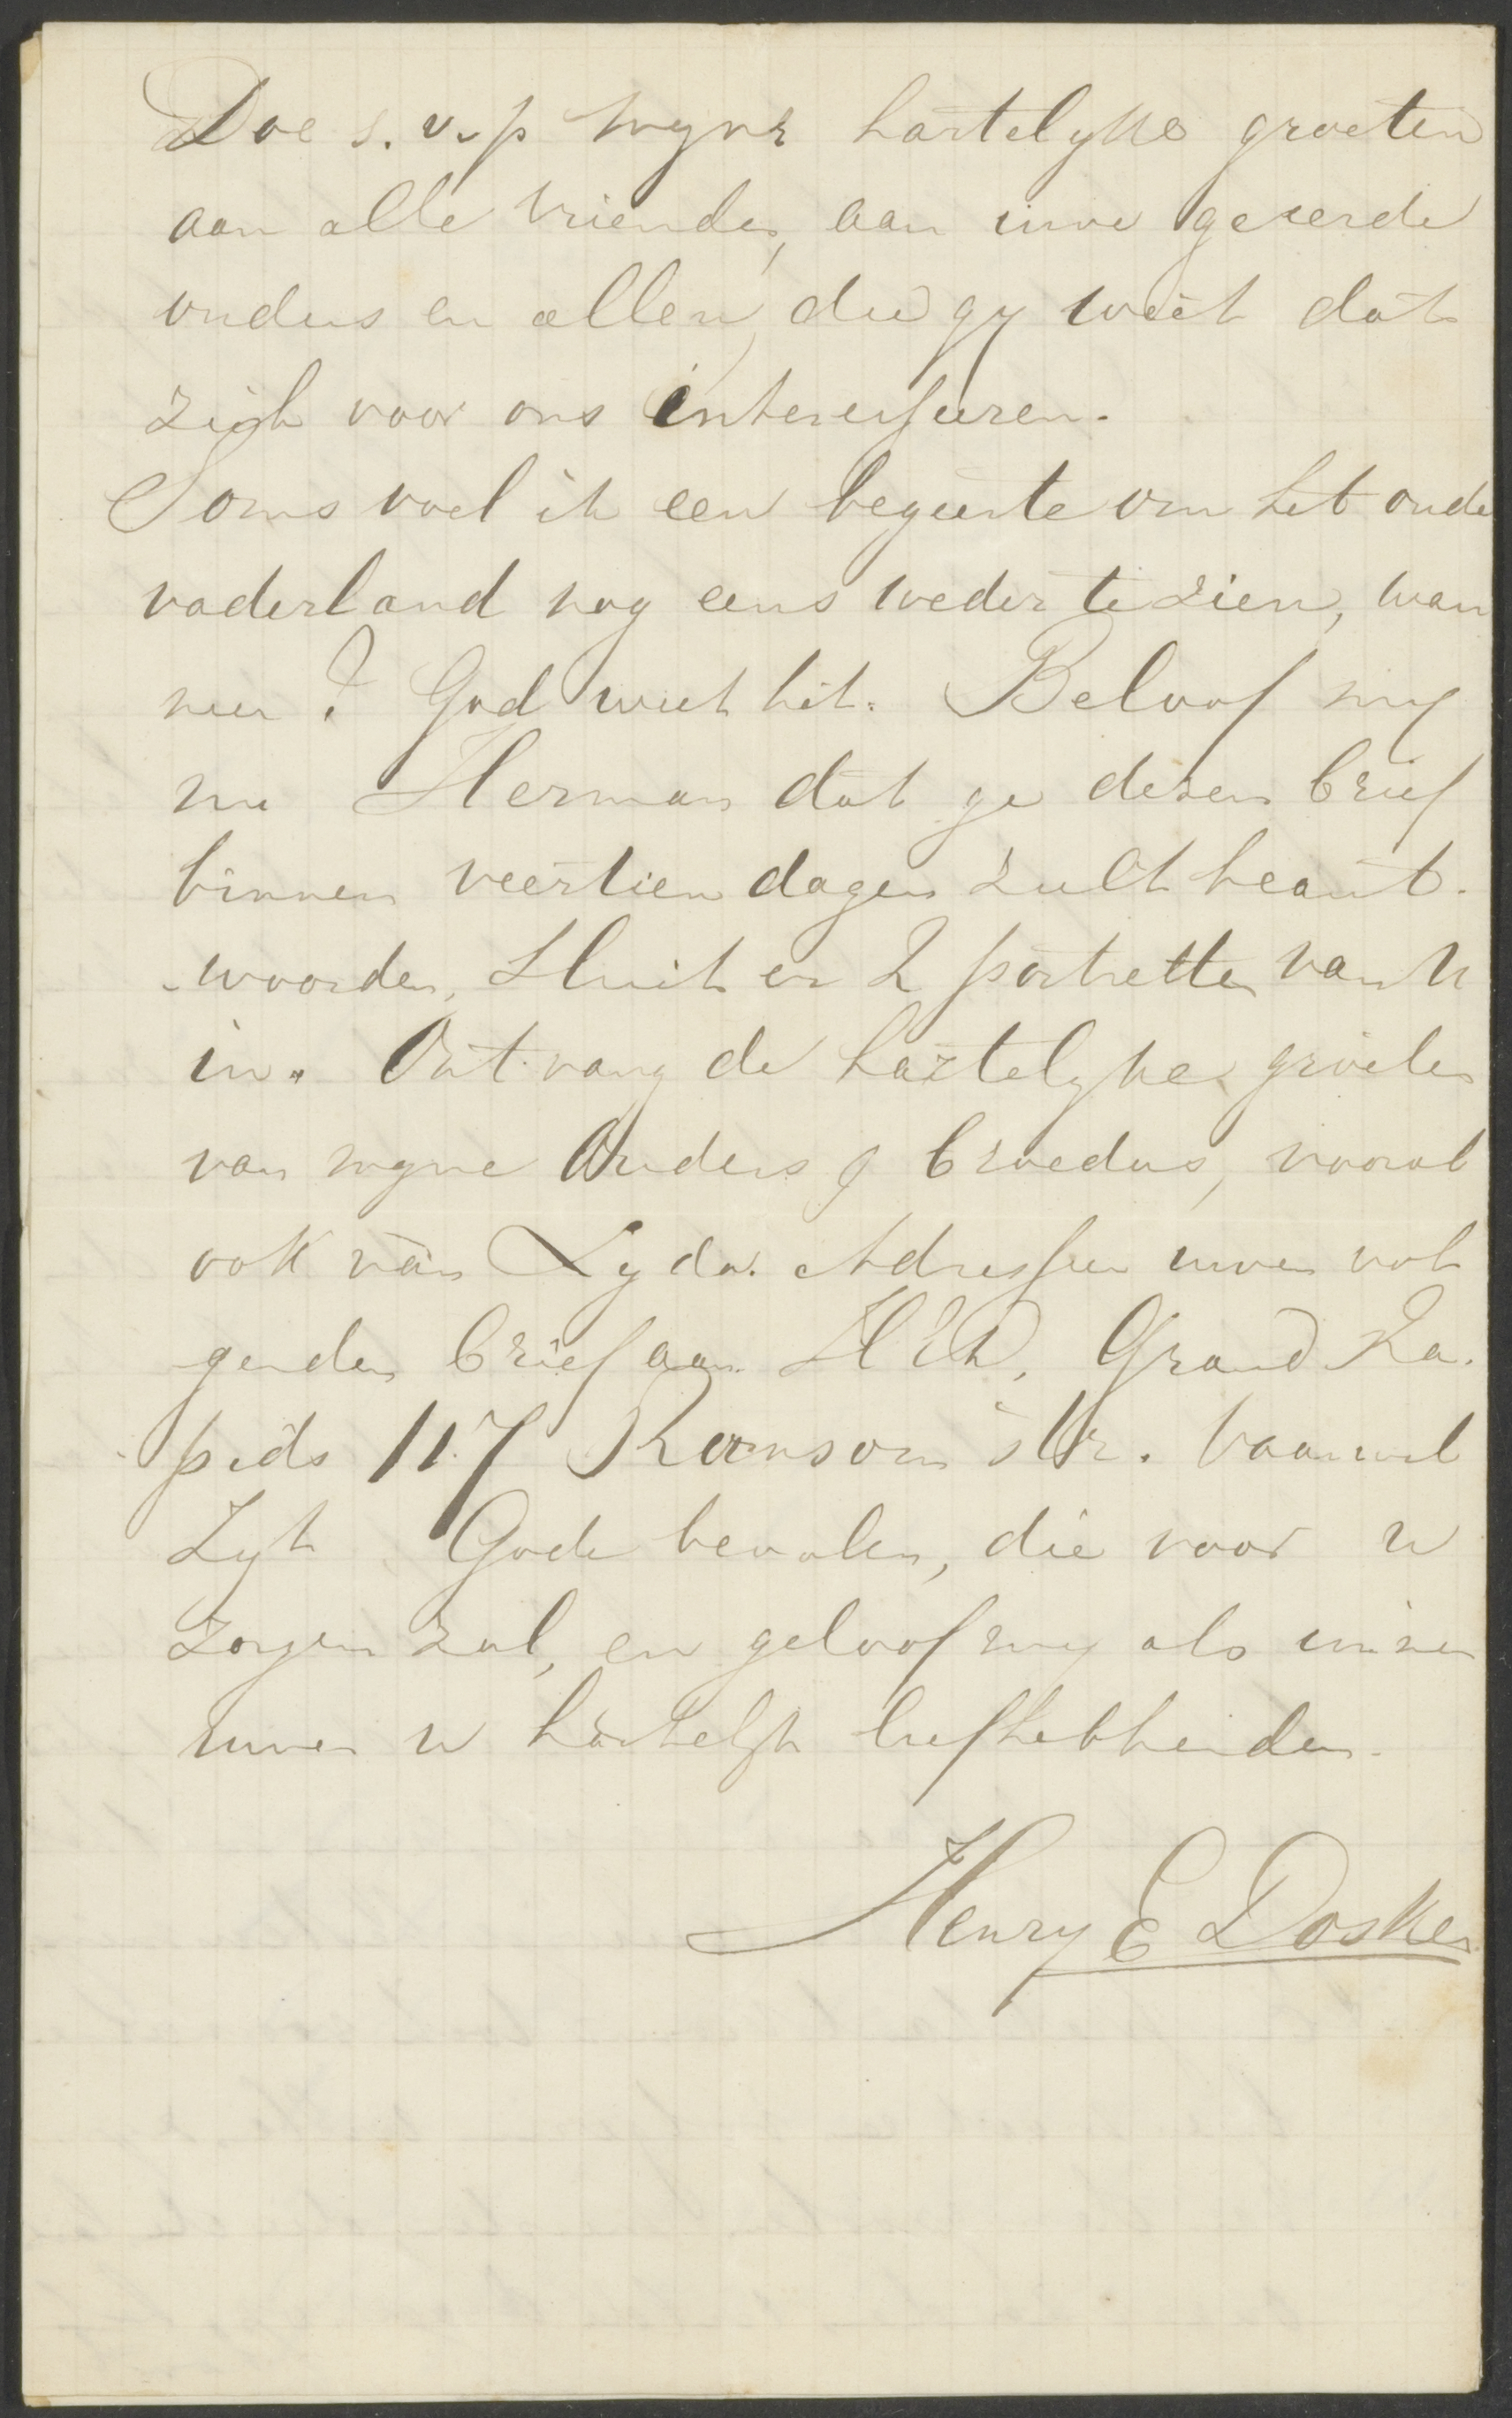 Doe s.v.p mijne hartelijke groeten
aan alle vrienden, aan uwe geeerde
ouders en allen, die gij weet dat
zich voor ons interesseeren.
Soms voel ik een begeerte om het oude
vaderland nog eens weder te zien, wan
neer? God weet het. Beloof mij
nu Herman dat ge dezen brief
binnen veertien dagen zult beant-
-woorden, Sluit er 2 portretten van U
in. Ontvang de hartelijke groeten
van mijne Ouders & broeders, vooral
ook van Lyda. Adresseer uwen vol
genden brief aan H E D, Grand Ra-
pids 117 Ransom Str. Vaarwel
Zijt Gode bevolen, die voor u
zorgen zal, en geloof mij als immer
uwen u hartelijk liefhebbenden.
Henry E Dosker